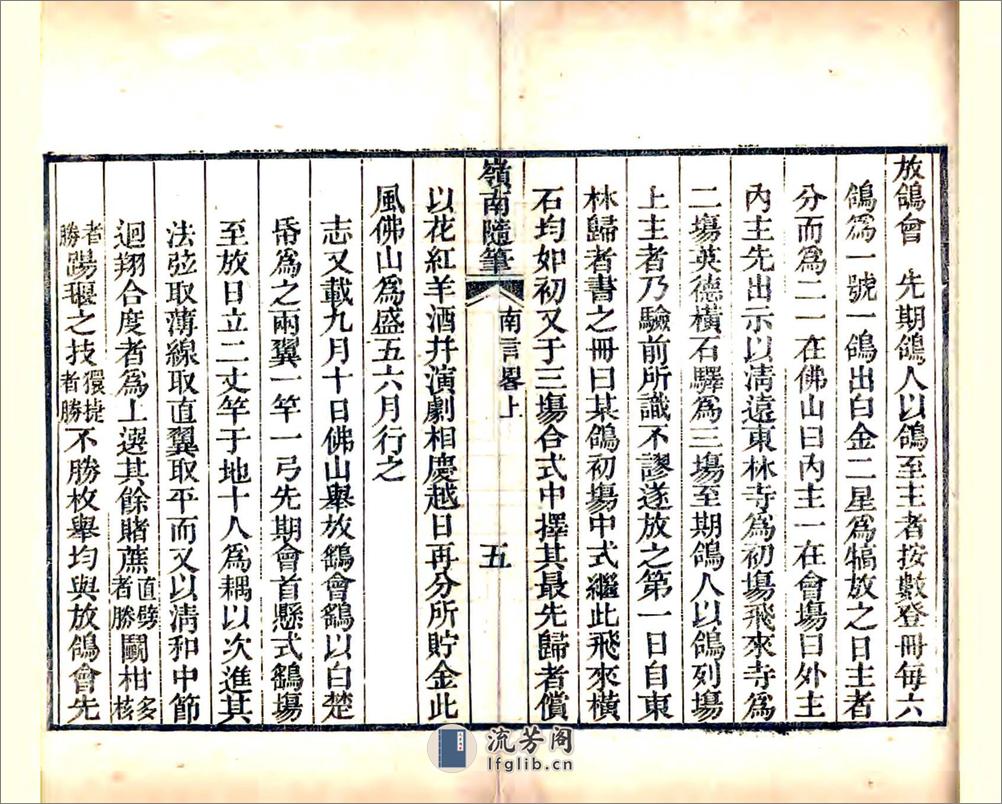 放鴿會　先期鴿人以鴿至主者按數登冊每六
鴿爲一號一鴿出白金二星爲犒放之日主者
分而爲二一在佛山曰內主一在會塲曰外主
內主先出示以淸遠東林寺爲初塲飛來寺爲
二塲英德橫石驛爲三塲至期鴿人以鴿列塲
上主者乃驗前所識不謬遂放之第一日自東
林歸者書之冊曰某鴿初塲中式繼此飛來橫
石均如初又于三塲合式中擇其最先歸者償
嶺南隨筆　南言畧上　五
以花紅羊酒幷演劇相慶越日再分所貯金此
風佛山爲盛五六月行之
志又載九月十日佛山舉放鷂會鷂以白楚
昏爲之兩翼一竿一弓先期會首懸式鷂塲
至放日立二丈竿于地十人爲耦以次進其
法弦取薄線取直翼取平而又以淸和中節
迴翔合度者爲上選其餘賭蔗直劈者勝鬭柑多核
者勝踢𡎺之技獧捷者勝不勝枚舉均與放鴿會先
流芳阁
lfglib.cn